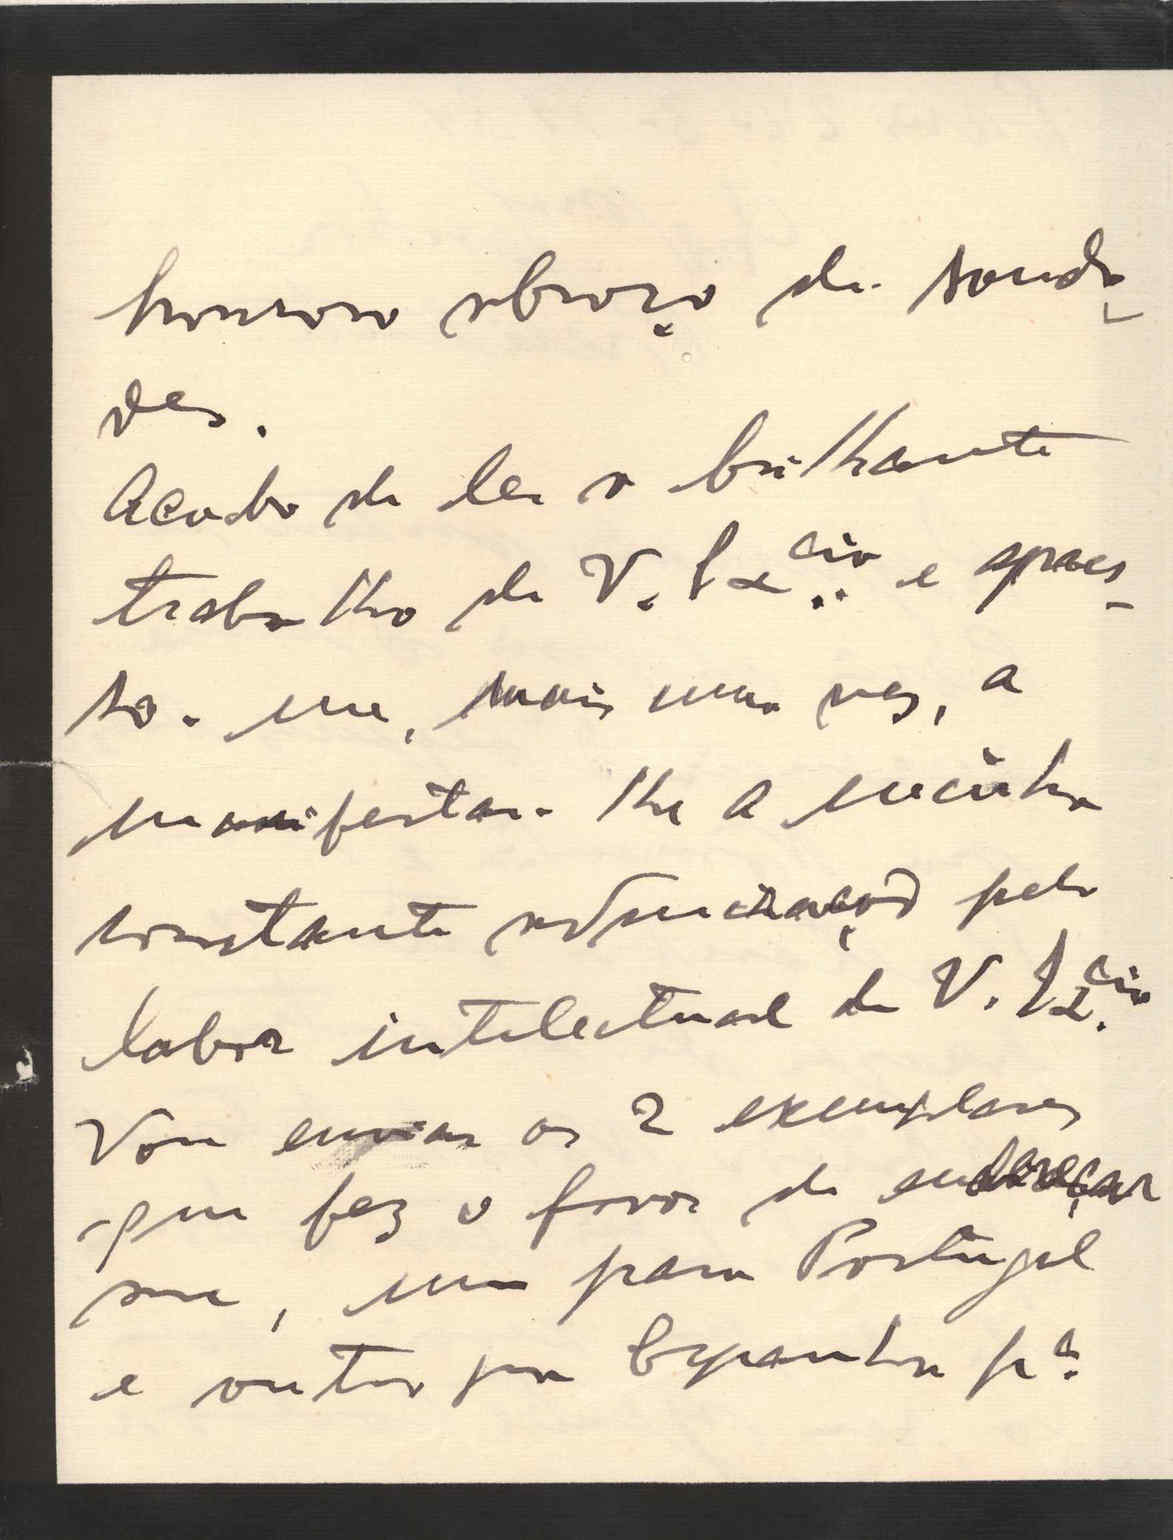 honroso abraço de sauda-
des.
Acabo de ler o brilhante
trabalho de V. Excia. e apres-
so-me, mais uma vez, a
manifestar-lhe a minha
constante admiração pelo
labor intelectual de V. Excia.
Vou enviar os 2 exemplares
que fez o favor de endereçar
me, um para Portugal
e outro pra Espanha pª.